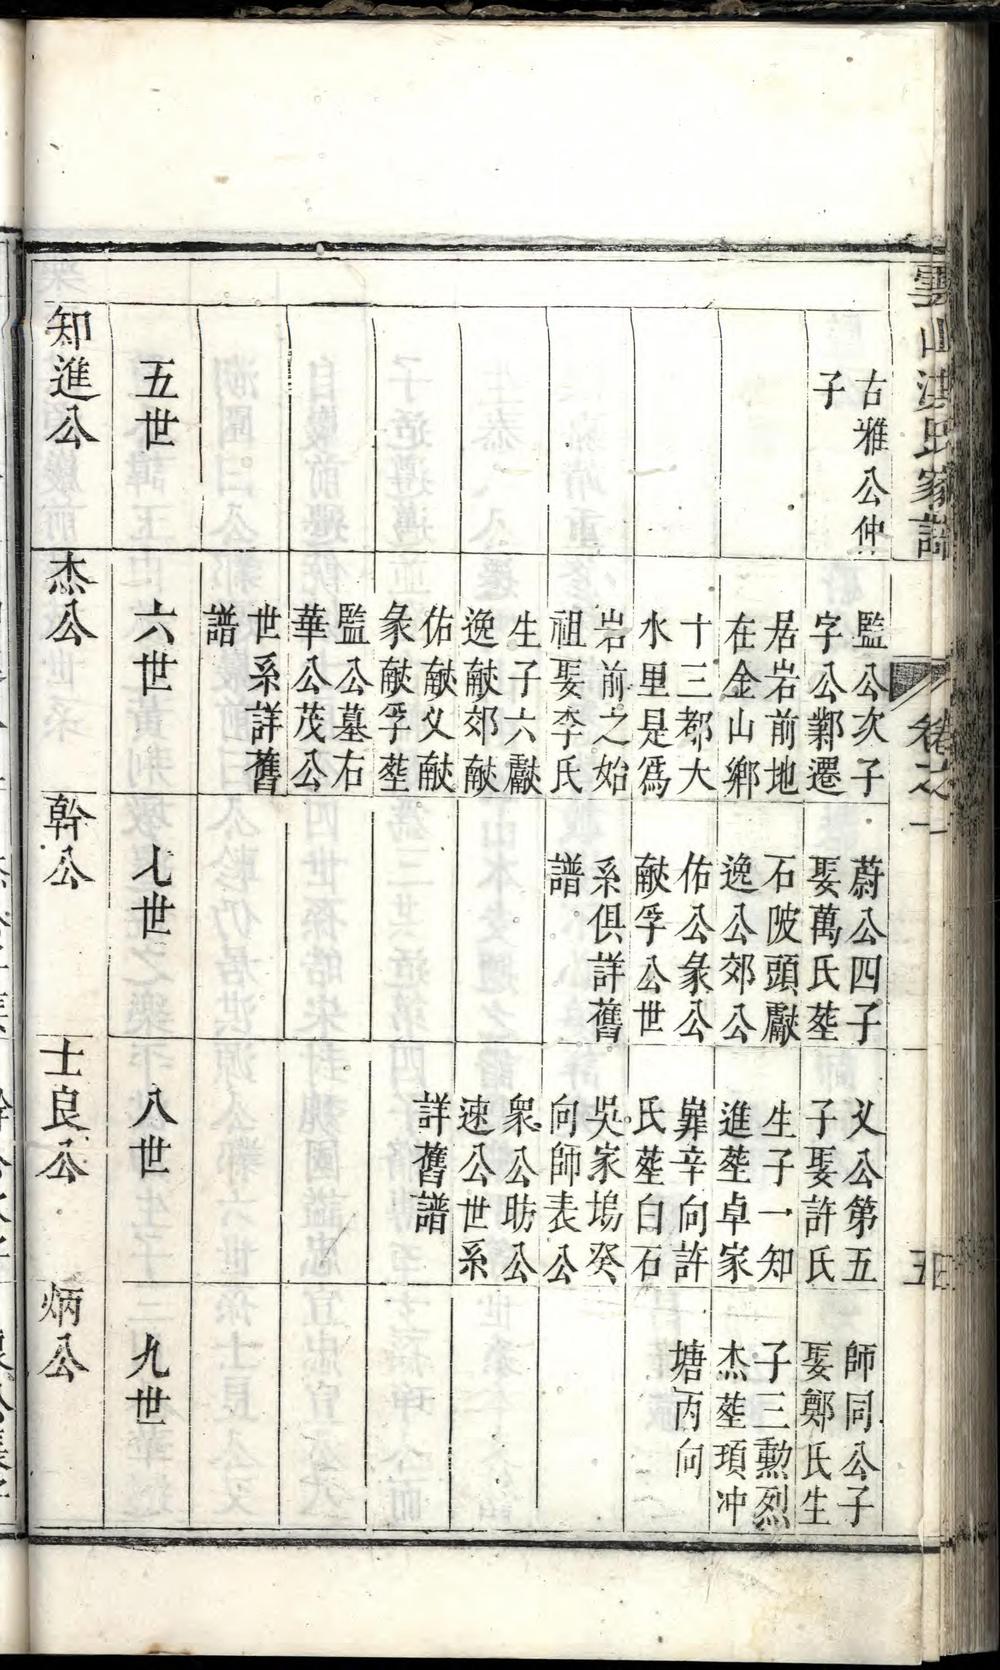 雲山洪氏家譜
卷之一
五
古雅公仲
子
監公次子
字公鄴遷
居岩前地
在金山鄉
十三都大
水里是為
岩前之始
祖娶李氏
生子六獻
逸献郊献
佑献乂献
彖献孚塟
監公墓右
華公茂公
世系詳舊
譜
蔚公四子
娶萬氏塟
石陂頭獻
逸公郊公
佑公彖公
献孚公世
系俱詳舊
譜
乂公第五
子娶許氏
生子一知
進塟卓家
辛向許
氏塟白石
吳家塢癸
向師表公
衆公昉公
速公世系
詳舊譜
師同公子
娶鄭氏生
子三勲烈
杰塟項冲
塘丙向
五世
六世
七世
八世
九世
知進公
杰公
幹公
士良公
炳公